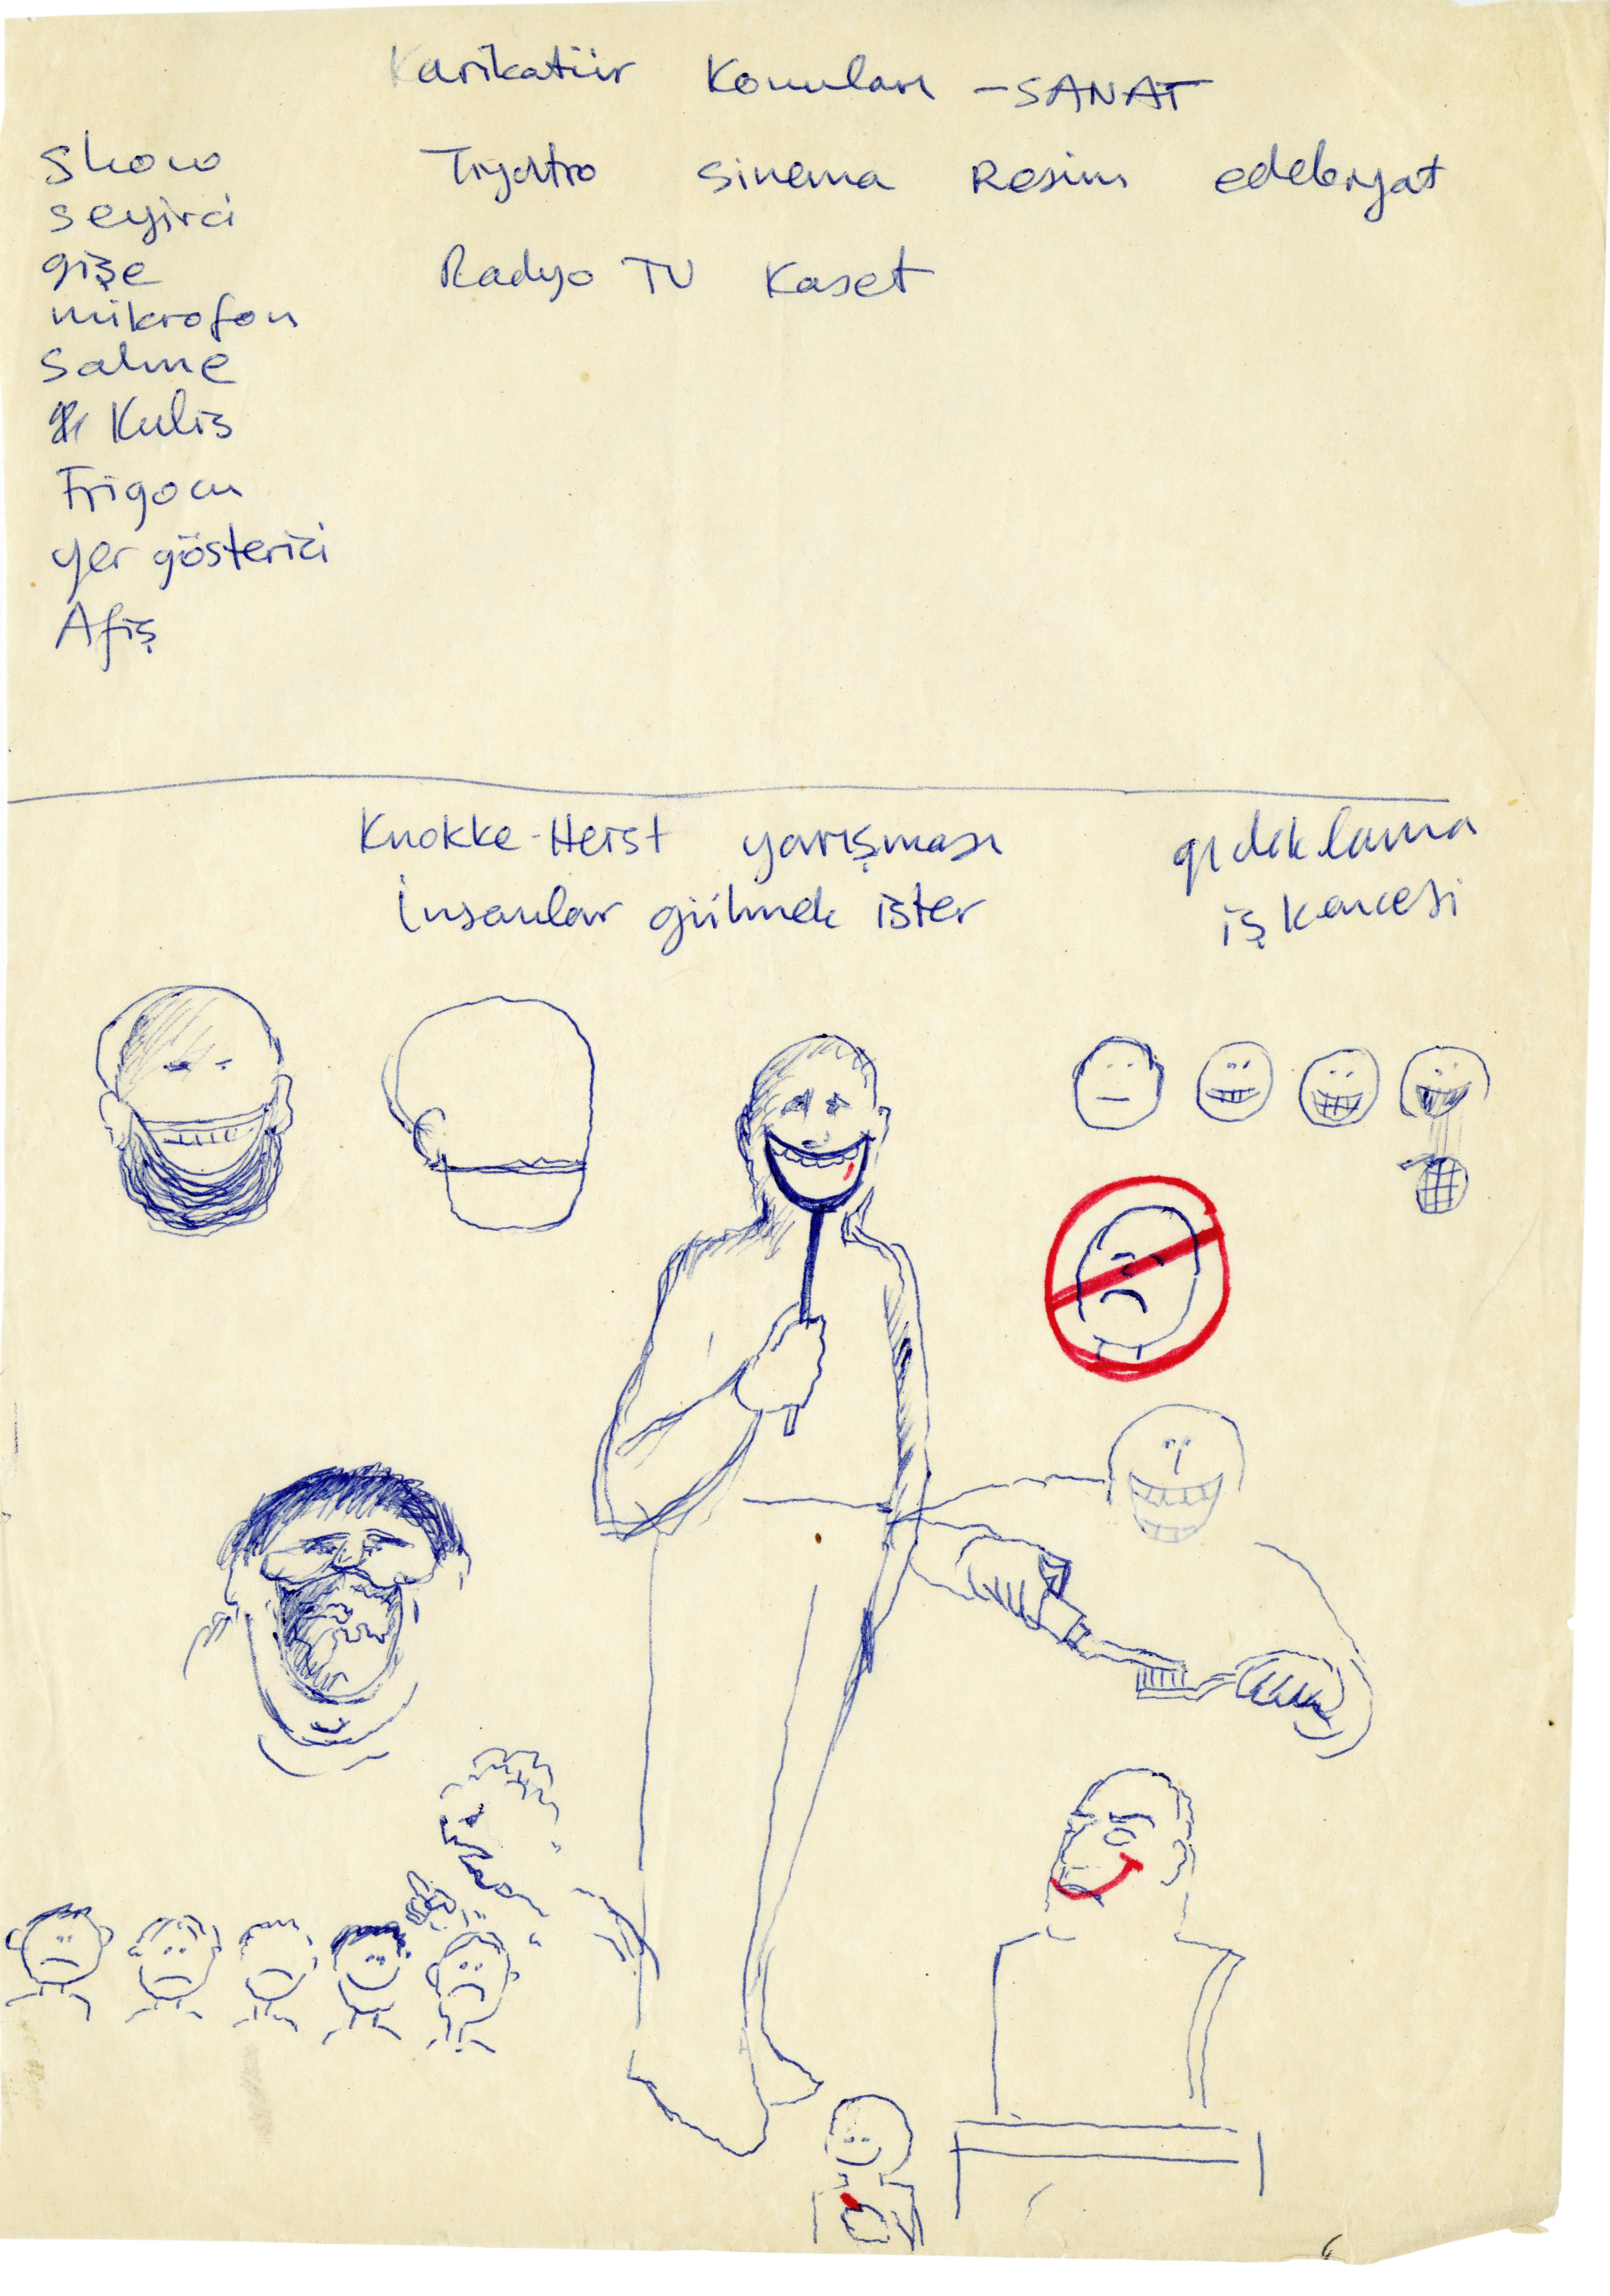 Karikatür Konuları - SANAT
Tiyatro sinema Resim edebiyat
Radyo TV Kaset
Show
seyirci
gişe
mikrofon
Sahne
Kulis
Frigocu
yer gösterici
Afiş
Knokke-Heist yarışması
İnsanlar gülmek ister
gıdıklama
işkencesi